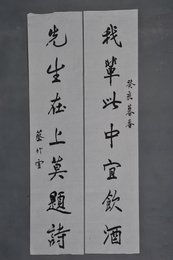 我輩此中宜飲酒
癸亥暮春
先生在上莫題詩